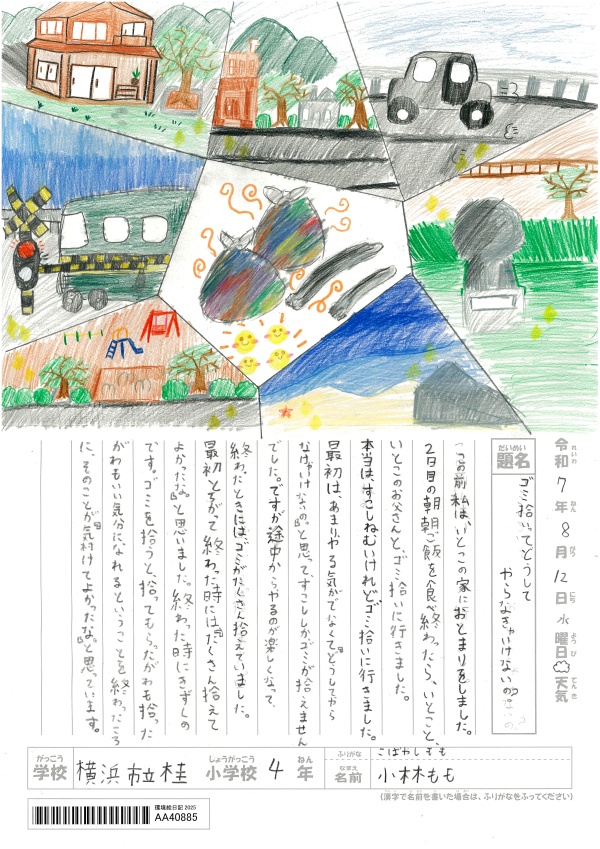 令和7年8月12日水曜日天気
れいわ ねん がつ にち ようび てんき
題名 ゴミ拾いってどうして
だいめい
やらなきゃいけないの?
この前私は、いとこの家におとまりをしました。
2日目の朝朝ご飯を食べ終わったら、いとこと、
いとこのお父さんと、ゴミ拾いに行きました。
本当は、すこしねむいけれどゴミ拾いに行きました。
最初は、あまりやる気がでなくて『どうしてやら
なきゃいけないの。』と思ってすこししかゴミが拾えません
でした。ですが途中からやるのが楽しくなって、
終わったときには、ゴミがたくさん拾えていました。
最初とちがって終わった時には『たくさん拾えて
よかったな。』と思いました。終わった時にきずくの
です。ゴミを拾うと、拾ってもらったがわも拾った
がわもいい気分になれるということを終わったころ
に、『そのことが気付けてよかったな。』と思っています。
がっこう しょうがっこう ねん ふりがな こばやしもも
学校 横浜市立桂 小学校 4 年 名前 小林もも
なまえ
(漢字で名前を書いた場合は、ふりがなをふってください)
環境絵日記 2025
AA40885